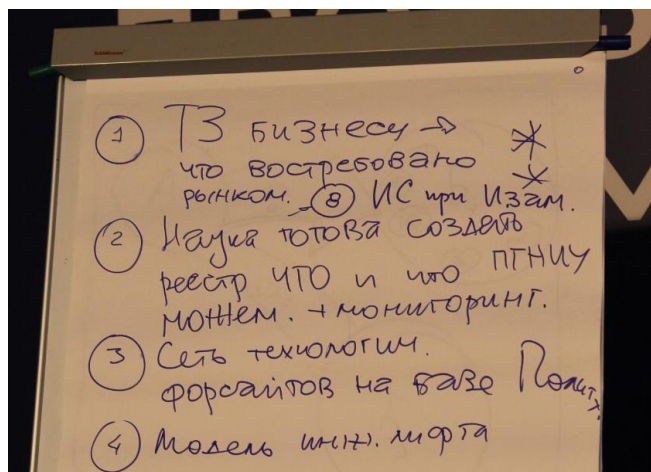 ① ТЗ бизнесу →
что востребовано
рынком. ⑧ ИС при Изам.
② Наука готова создать
реестр ЧТО и что ПГНИУ
можем. + мониторинг.
③ Сеть технологич.
форсайтов на базе Политх.
④ Модель инж. лифта